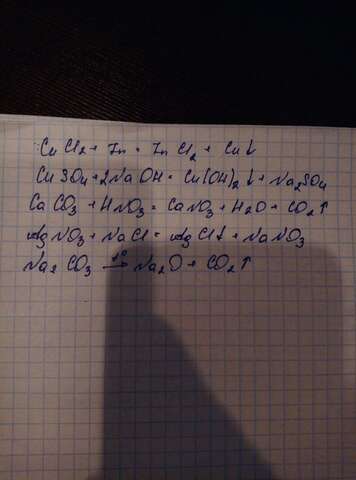 CuCl2 + Zn = ZnCl2 + Cu↓
CuSO4 + 2NaOH = Cu(OH)2↓ + Na2SO4
CaCO3 + HNO3 = CaNO3 + H2O + CO2↑
AgNO3 + NaCl = AgCl↓ + NaNO3
Na2CO3 —t°→ Na2O + CO2↑